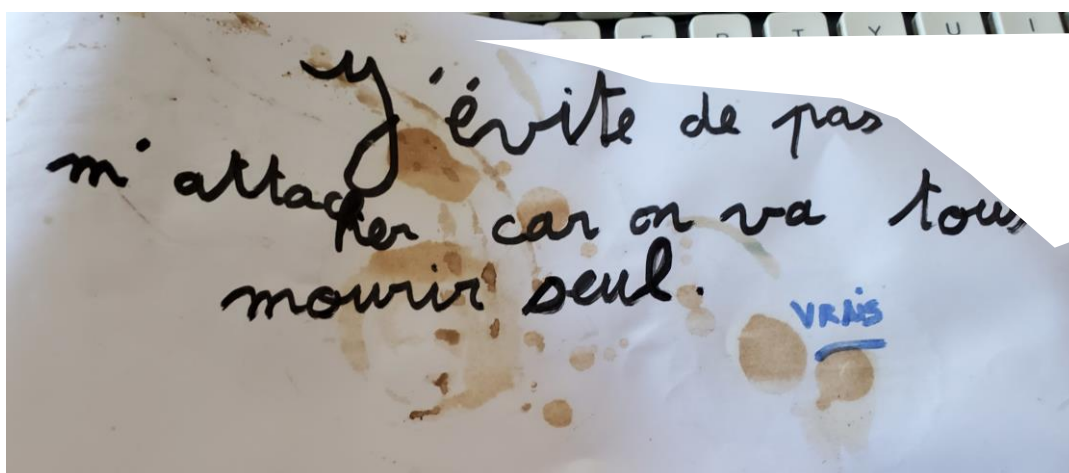 J'évite de pas
m'attacher car on va tous
mourir seul.
VRAIS
E R T Y U I